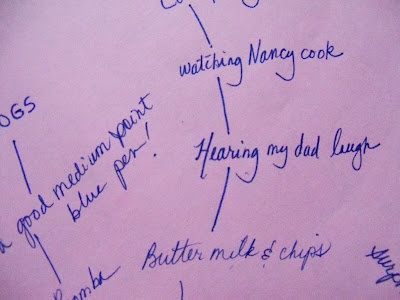 watching Nancy cook
OGS
a good medium point
blue pen!
Hearing my dad laugh
Butter milk & chips